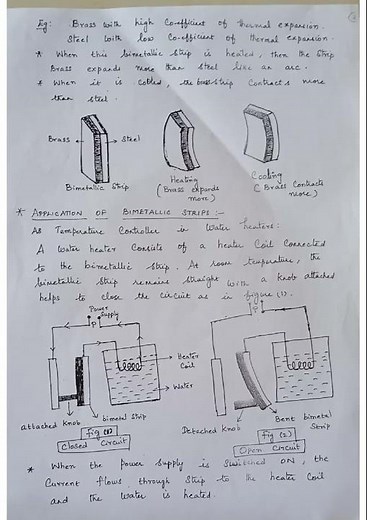 Eg: Brass with high Co-efficient of thermal expansion.
Steel with low Co-efficient of thermal expansion.
* When this bimetallic strip is heated, then the strip
Brass expands more than steel like an arc.
* When it is cooled, the brass strip contracts more
than steel.
Brass
Steel
Bimetallic Strip
Heating
(Brass expands
more)
Cooling
(Brass Contracts
more)
* APPLICATION OF BIMETALLIC STRIPS :-
As Temperature Controller in Water heaters:
A water heater Consists of a heater Coil Connected
to the bimetallic strip. At room temperature, the
bimetallic strip remains straight with a knob attached
helps to close the circuit as in figure (1).
Power
Supply
P
P
Heater
Coil
Water
attached Knob
bimetal Strip
Detached Knob
Bent bimetal
Strip
Fig (1)
Closed Circuit
Fig (2)
Open Circuit
* When the power Supply is Switched ON, the
Current flows through Strip to the heater Coil
and the water is heated.